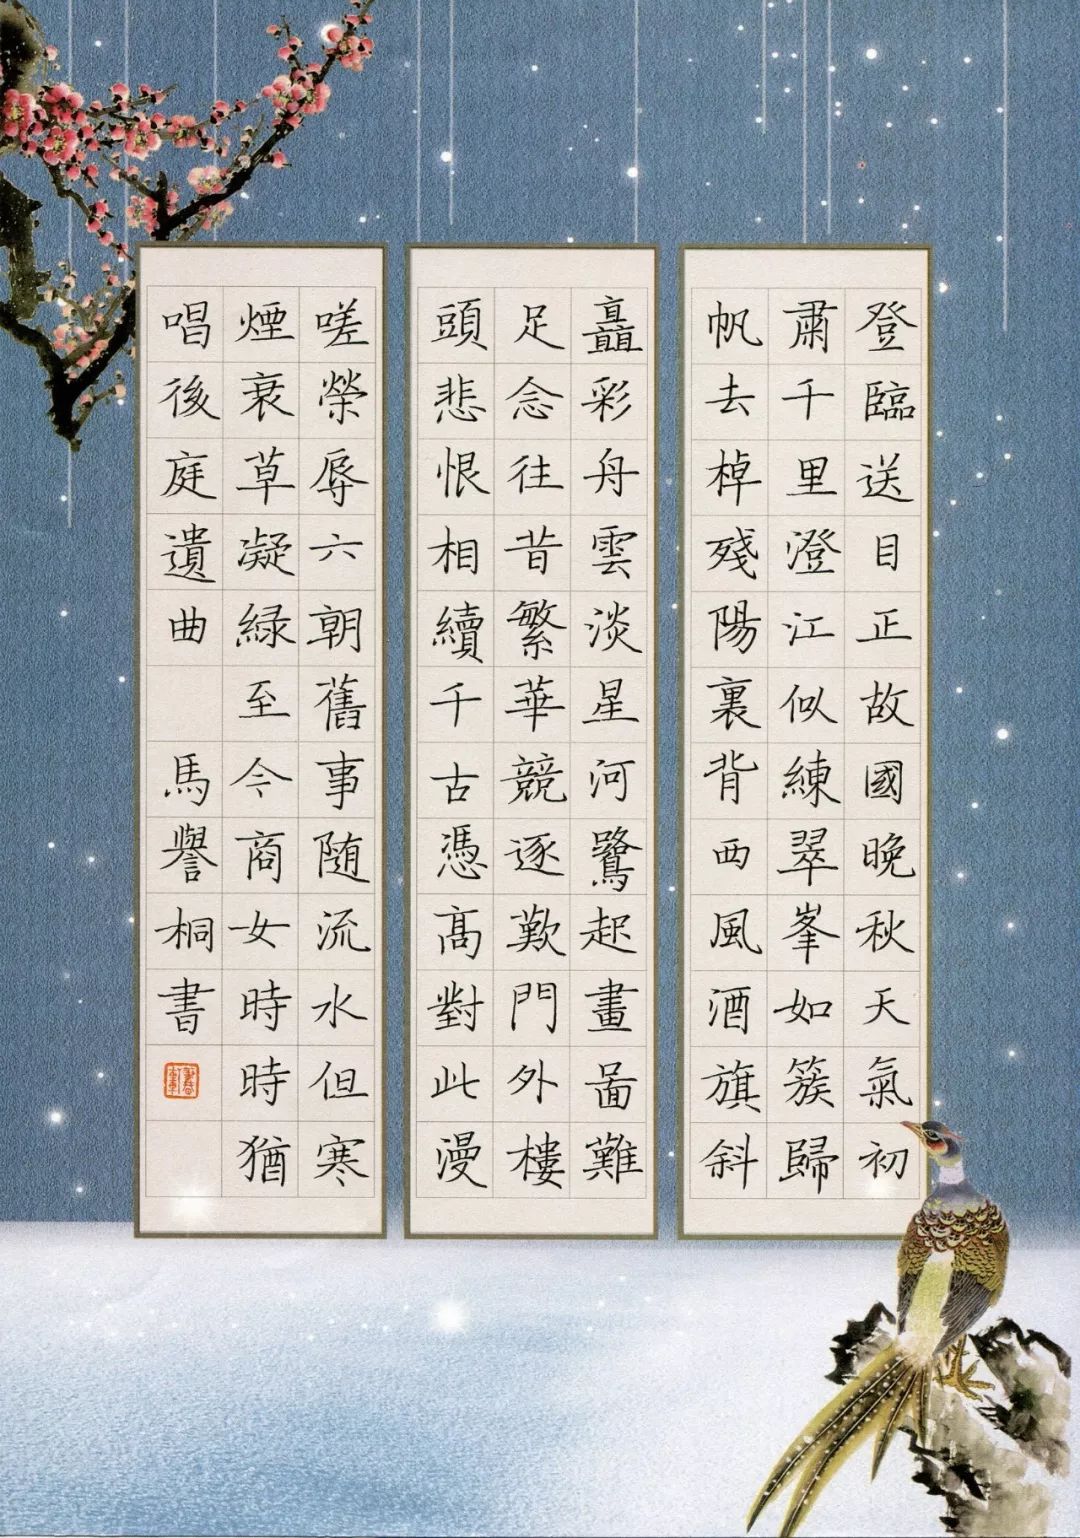 登臨送目正故國晚秋天氣初
肅千里澄江似練翠峯如簇歸
帆去棹殘陽裏背西風酒旗斜
矗彩舟雲淡星河鷺起畫啚難
足念往昔繁華競逐歎門外樓
頭悲恨相續千古憑髙對此漫
嗟榮辱六朝舊事随流水但寒
煙衰草凝緑至今商女時時猶
唱後庭遺曲 馬譽桐書